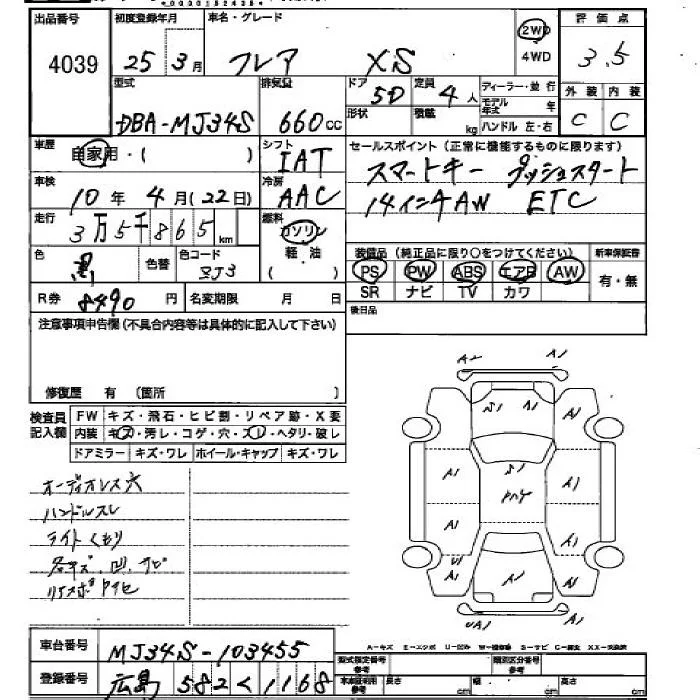 出品番号 初度登録年月 車名・グレード 評価点
4039 25年3月 フレア XS 2WD 4WD 3.5
型式 排気量 ドア 定員 ディーラー・並行 外装 内装
DBA-MJ34S 660cc 5D 4人 モデル年式 年 C C
形状 積載 kg ハンドル 左・右
車歴 自家用・( ) シフト IAT セールスポイント(正常に機能するものに限ります)
スマートキー プッシュスタート
車検 10年4月(22日) 冷房 AAC 14インチAW ETC
走行 3万5千865km 燃料 ガソリン 軽・油 ( )
装備品(純正品に限り○をつけてください) 新車保証書
色 黒 色替 色コード ZJ3 PS PW ABS エアB AW 有・無
SR ナビ TV カワ
R券 8490円 名変期限 月 日 後日品
注意事項申告欄(不具合内容等は具体的に記入して下さい)
修復歴 有 (箇所 )
検査員記入欄 FW キズ・飛石・ヒビ割・リペア跡・X要
内装 キズ・汚レ・コゲ・穴・スレ・ヘタリ・破レ
ドアミラー キズ・ワレ ホイール・キャップ キズ・ワレ
オーディオレス穴
ハンドルスレ
ライトくもり
各キズ、凹、サビ
A2 A1
S1 A1 A1
A1 S1 A1
A1 A1
U1 A1 A1 A1
UA1 A1
A-キズ E-エクボ U-凹み W-補修車 S-サビ C-腐食 XX-交換済
車台番号 MJ34S-103455
登録番号 広島 582 く 1168
型式指定番号 参考 類別区分番号 参考
車庫証明用 参考 長さ cm 幅 cm 高さ cm